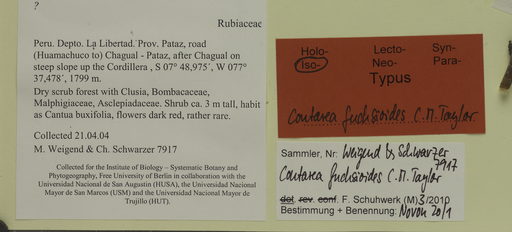 ?
Rubiaceae
Peru. Depto. La Libertad. Prov. Pataz, road
(Huamachuco to) Chagual - Pataz, after Chagual on
steep slope up the Cordillera , S 07° 48,975´, W 077°
37,478´, 1799 m.
Dry scrub forest with Clusia, Bombacaceae,
Malphigiaceae, Asclepiadaceae. Shrub ca. 3 m tall, habit
as Cantua buxifolia, flowers dark red, rather rare.
Collected 21.04.04
M. Weigend & Ch. Schwarzer 7917
Collected for the Institute of Biology – Systematic Botany and
Phytogeography, Free University of Berlin in collaboration with the
Universidad Nacional de San Augustin (HUSA), the Universidad Nacional
Mayor de San Marcos (USM) and the Universidad Nacional Mayor de
Trujillo (HUT).
Holo- Lecto- Syn-
Iso- Neo- Para-
Typus
Coutarea fuchsioides C.M. Taylor
Sammler, Nr: Weigend & Schwarzer
7917
Coutarea fuchsioides C.M. Taylor
det. rev. conf. F. Schuhwerk (M) 3/2010
Bestimmung + Benennung: Novon 20/1